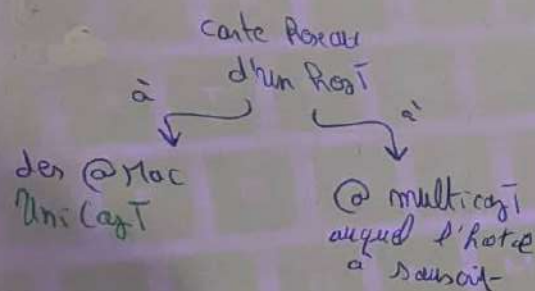 Carte Reseau
d'un host
à
à
des @Mac
UniCast
@ multicast
auquel l'hote
a souscrit